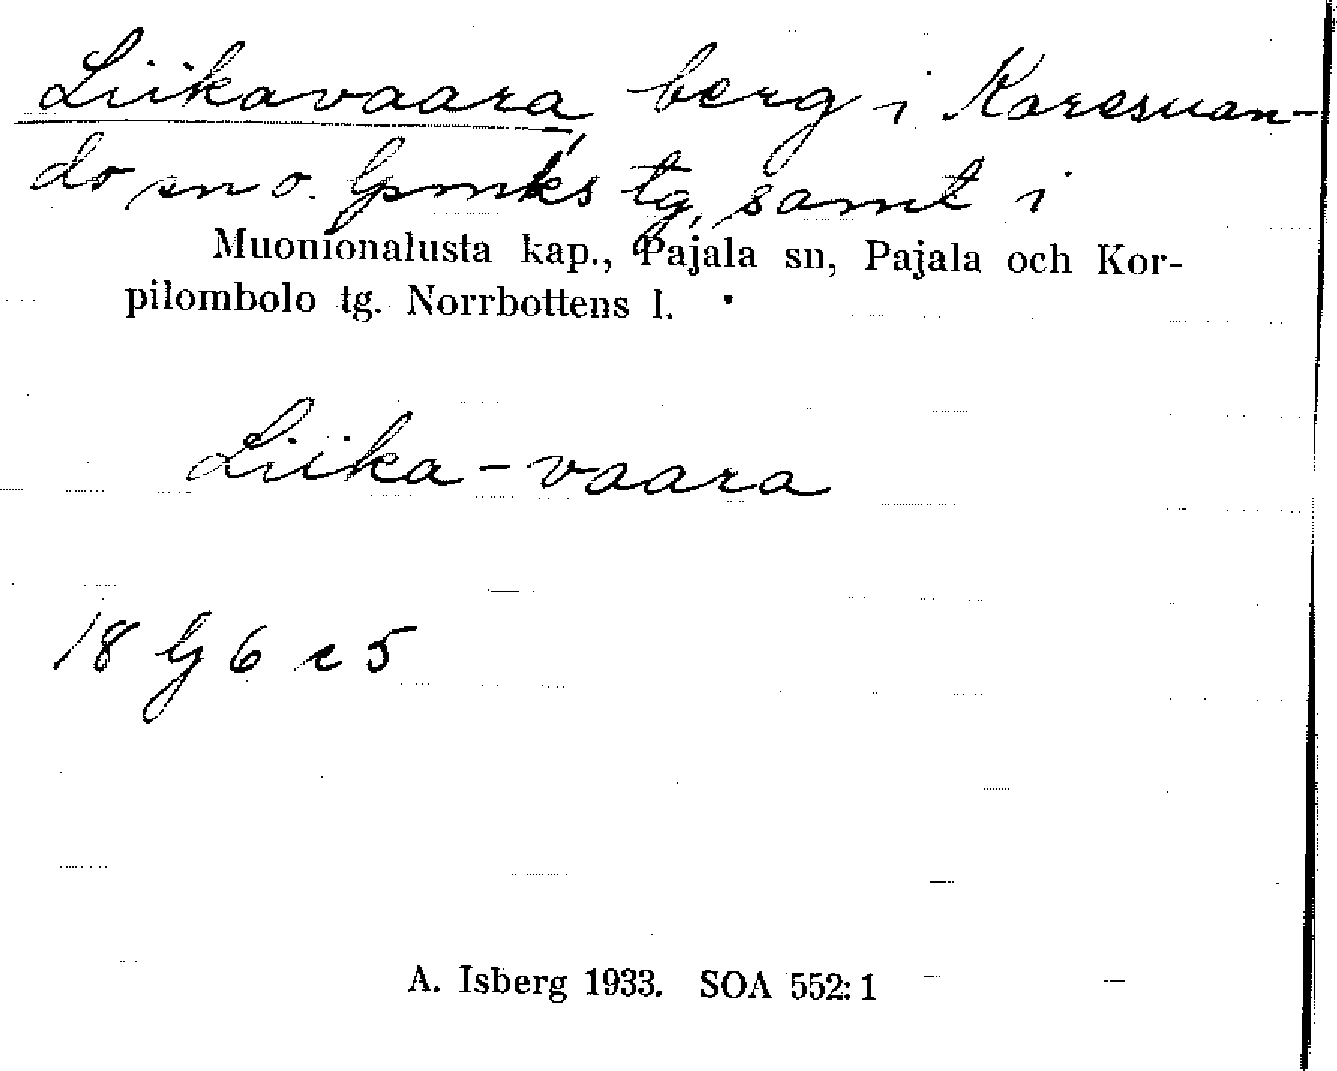 Liikavaara, berg i Karesuan-
do sn o. lpmks tg, samt i
Muonionalusta kap., Pajala sn, Pajala och Kor-
pilombolo tg. Norrbottens l.
Liika-vaara
18 G 6 c 5
A. Isberg 1933. SOA 552:1